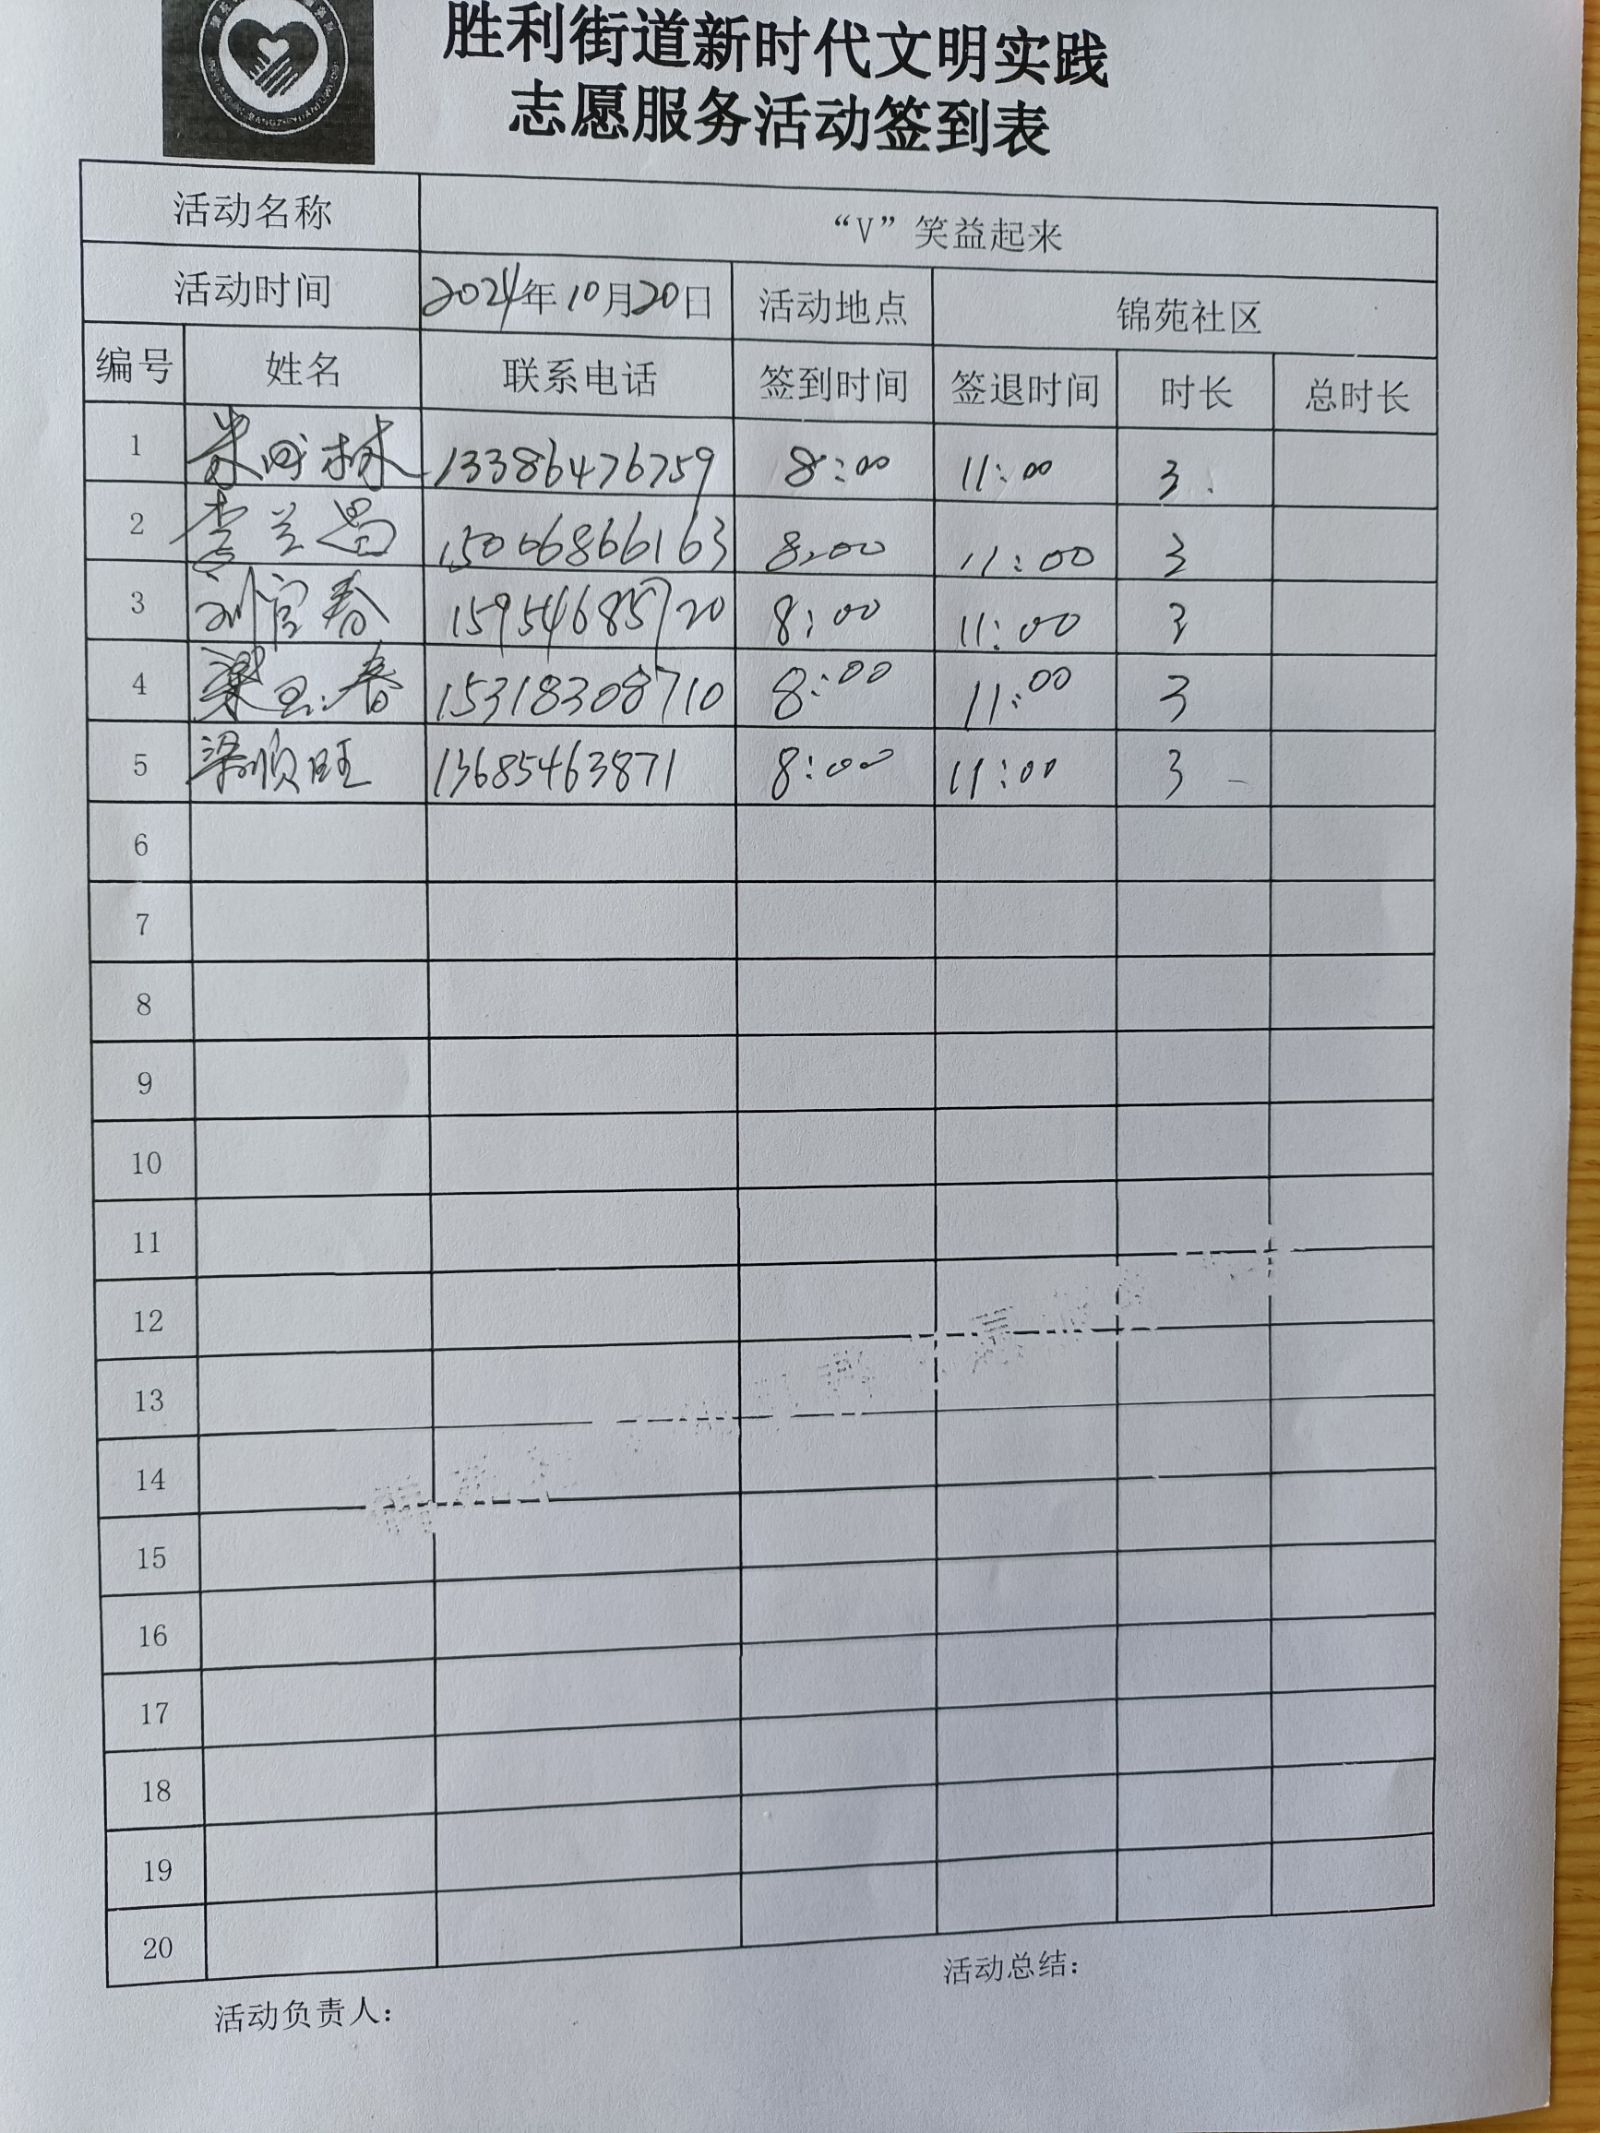 胜利街道新时代文明实践
志愿服务活动签到表
活动名称 “V”笑益起来
活动时间 2024年10月20日 活动地点 锦苑社区
编号 姓名 联系电话 签到时间 签退时间 时长 总时长
1 林 13386476759 8:00 11:00 3
2 李兰昌 15006866163 8:00 11:00 3
3 刘官春 15954685720 8:00 11:00 3
4 梁玉春 15318308710 8:00 11:00 3
5 梁顺旺 13685463871 8:00 11:00 3
6
7
8
9
10
11
12
13
14
15
16
17
18
19
20
活动总结：
活动负责人：